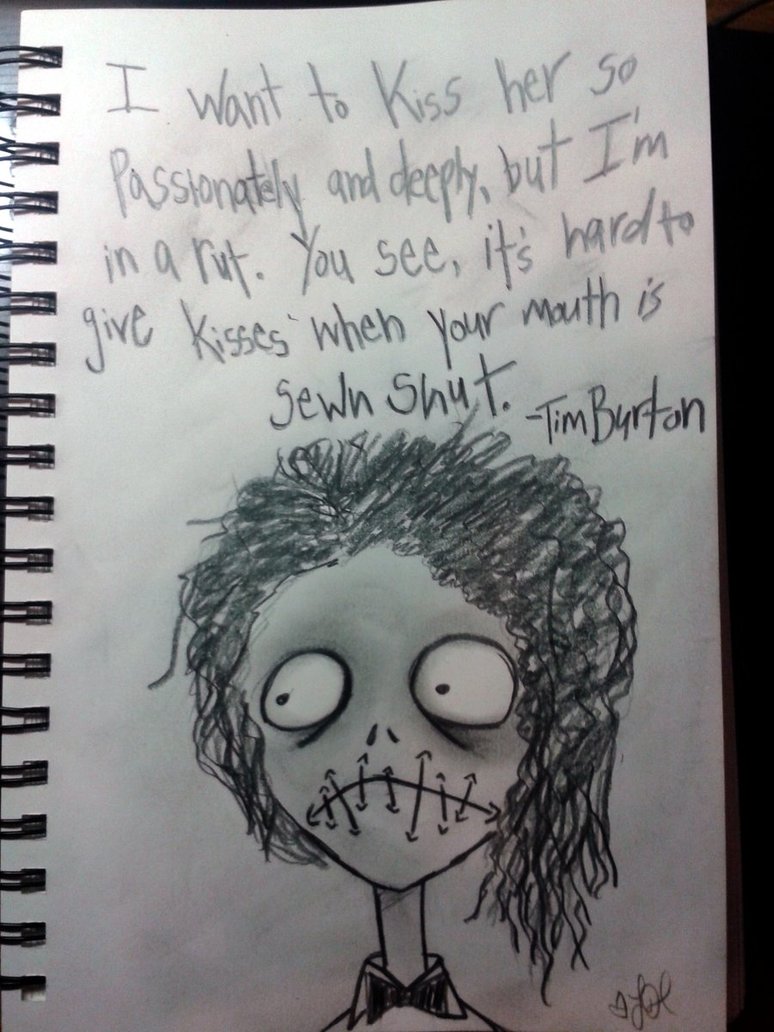 I want to Kiss her so
Passionately and deeply, but I'm
in a rut. You see, it's hard to
give kisses when your mouth is
sewn shut.
-Tim Burton